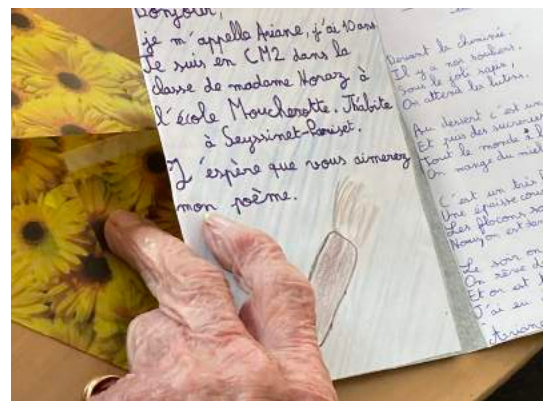 Bonjour,
je m'appelle Ariane, j'ai 10 ans
Je suis en CM2 dans la
classe de madame Noraz à
l'école Moucherotte. J'habite
à Seyssinet-Pariset.
J'espère que vous aimerez
mon poème.
Devant la cheminée.
Il y a nos souliers.
Sous le joli sapin,
On attend les lutins.
Au dessert c'est un
Et puis des sucreries
Tout le monde à l
On mange du miel
C'est un très
Une épaisse
Les flocons
Le soir on
On rêve
Et on est
J'ai eu
Ariane